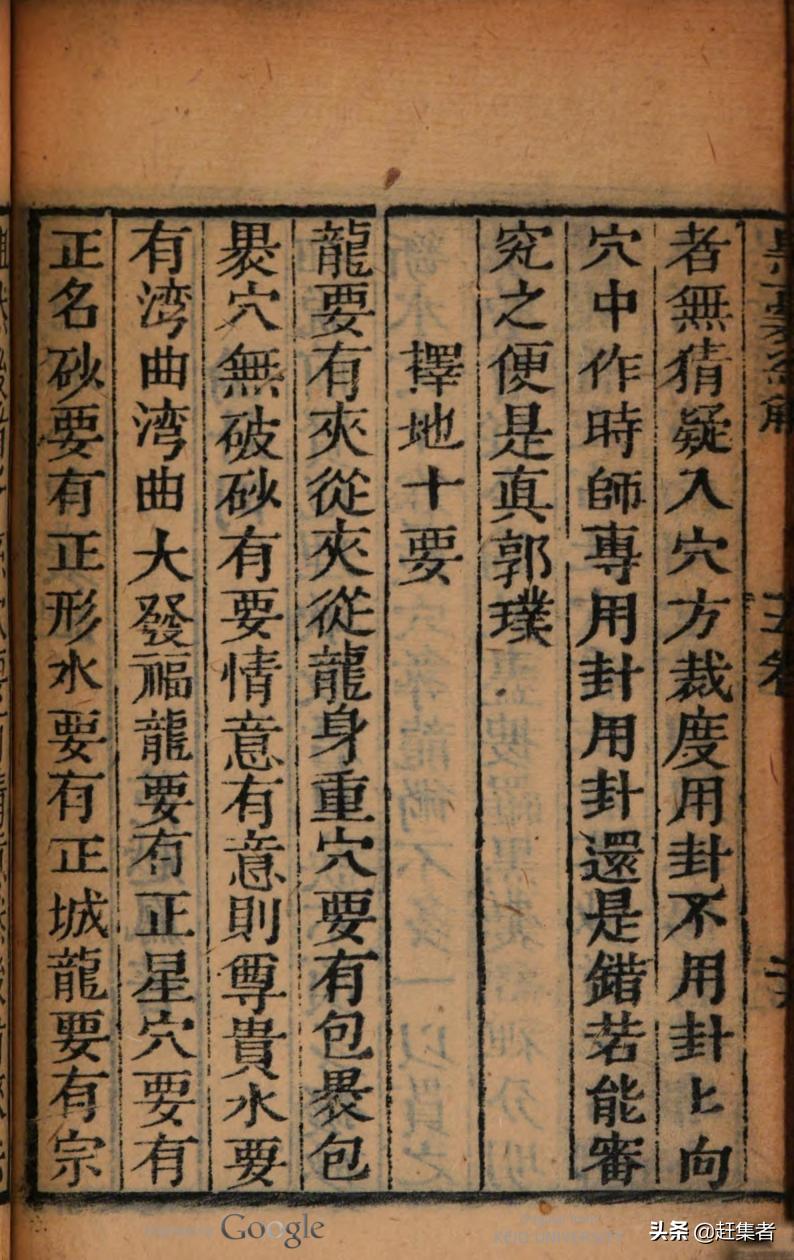 者無猜疑入穴方裁度用卦不用卦上向
穴中作時師專用卦用卦還是錯若能審
究之便是真郭璞
擇地十要
龍要有夾從夾從龍身重穴要有包褁包
褁穴無破砂有要情意有意則尊貴水要
有湾曲湾曲大發福龍要有正星穴要有
正名砂要有正形水要有正城龍要有宗
Google
头条 @赶集者